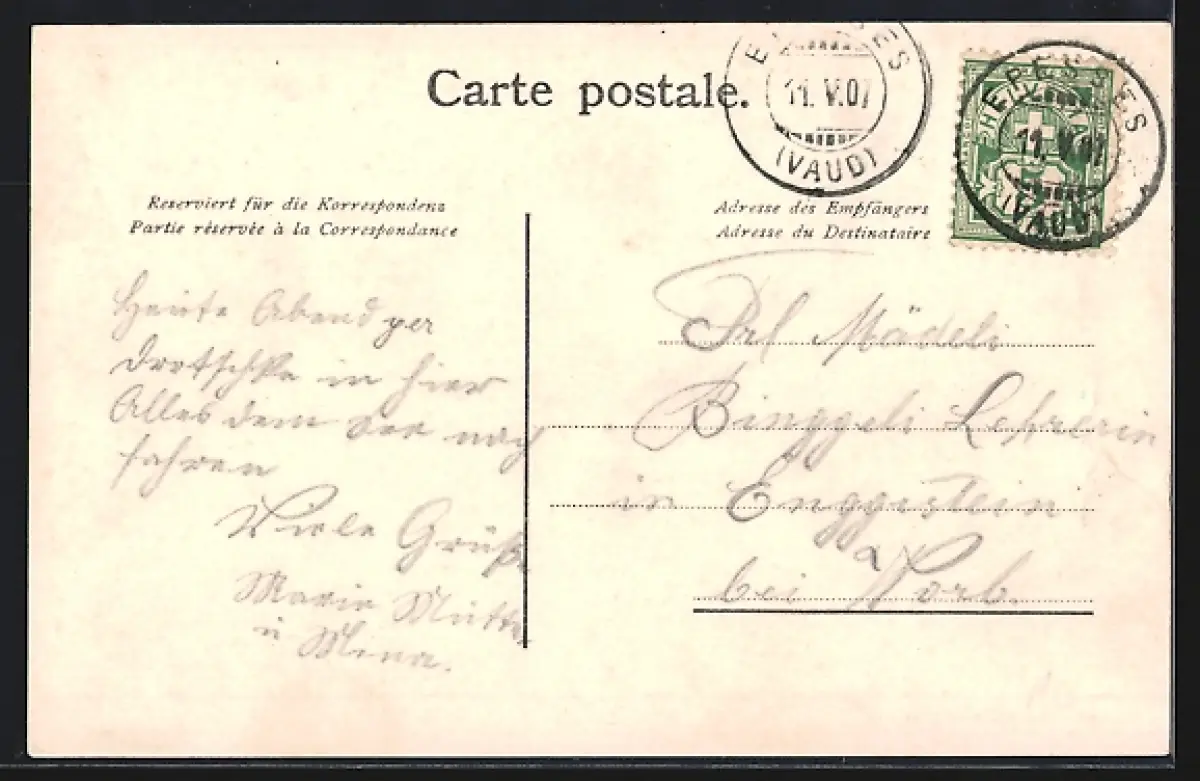 Carte postale.
E ES
11. V. 07
(VAUD)
HE
EPESSES
11. V. 07
(VAUD)
Reserviert für die Korrespondenz
Partie réservée à la Correspondance
Adresse des Empfängers
Adresse du Destinataire
Heute Abend per
in hier
Alles dem nach
fahren
Viele Grüße
Marie Mutter
u Mina.
Frl Mädeli
Binggeli Lehrerin
in Enggistein
bei Worb.